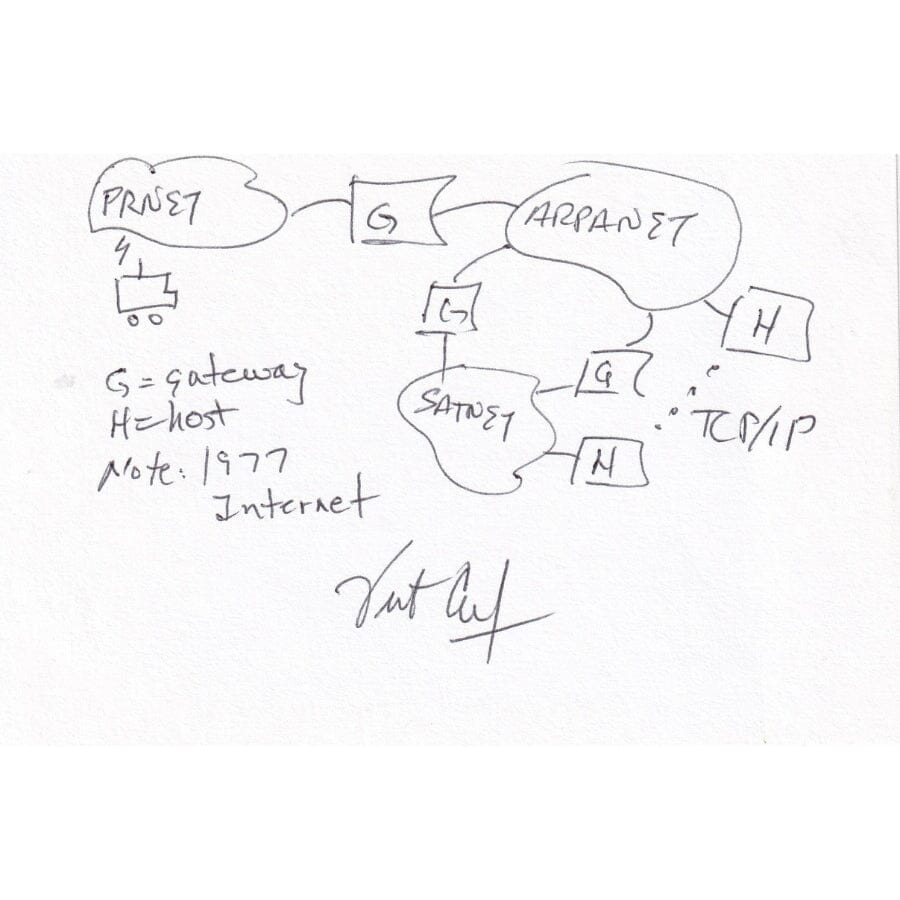 PRNET
G
ARPANET
G
H
G
SATNET
TCP/IP
H
G = gateway
H = host
Note: 1977
Internet
Vint Cerf